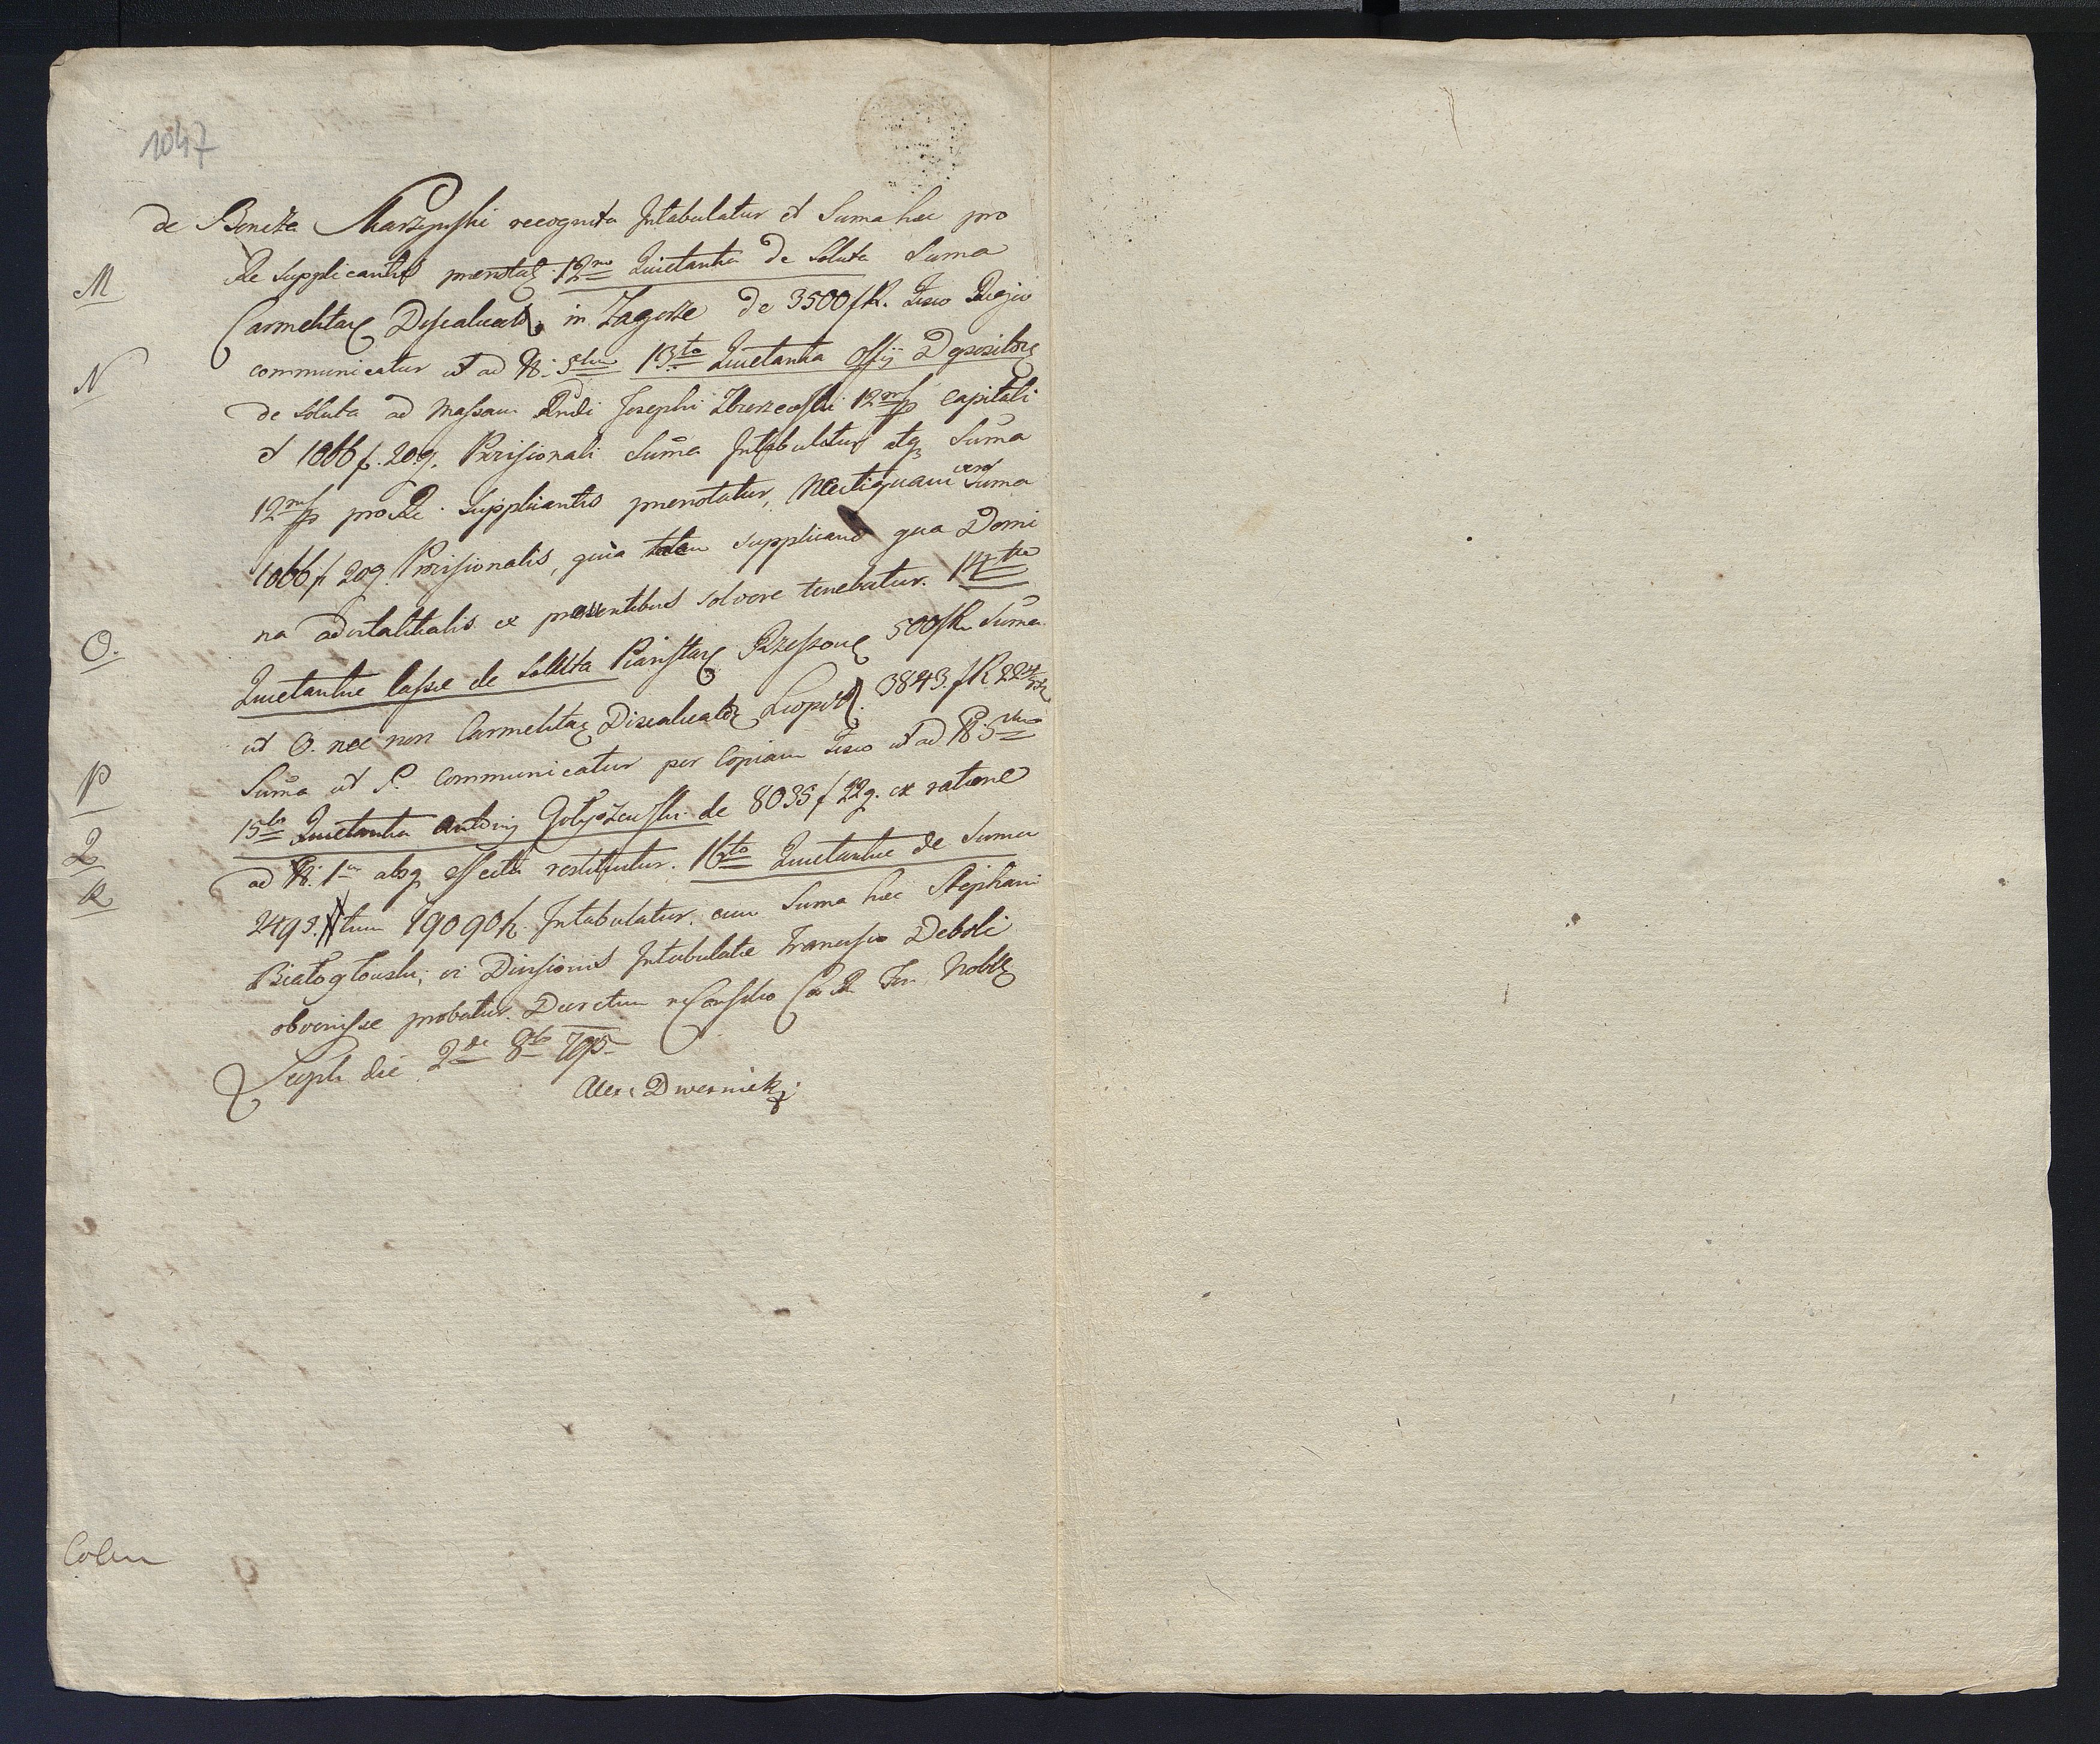 1047
de Boncza Marszynski recognita Intabulatur et Suma hac pro
M
Re Supplicantis prænotatʒ. 12mo Quietantia de Soluta Suma
Carmelitarʒ Discalceatʒ in Zagorze de 3500 fR. Fisco Regio
N
communicatur ut ad N: 5tum 13to Quietantia Offij Depositorʒ
de Soluta ad Massam Rndi Josephi 12m fp Capitali
et 1066 f. 20 g. Provisionali Suma Intabulatur atqʒ Suma
12m fp pro Re Supplicantis prænotatur, Neutiquam vero Suma
1066 f 20 g Provisionalis, quia talem supplicans qua Domi
na advitalitialis ex proventibus solvere tenebatur. 14to
O.
Quietantiæ Cassæ de Soluta Piaristarʒ Rzeszovʒ 500 fR Suma
ut O. nec non Carmelitarʒ Discalceatorʒ Leopolʒ. 3843. fR 22
P
Suma ut P. communicatur per Copiam Fisco ut ad N: 5tum
15to Quietantia Antonij de 8035 f 22 g. ex ratione
Q
ad N: 1um absqʒ effectu restituitur. 16to Quietantiæ de Suma
R
2495. tum 19090 f. Intabulatur. cum Suma hæc Stephani
Białogłowski, vi Divisionis Intabulatæ Francisco Deboli
obvenisse probatur. Decretum in Consilio Cæ R For. Nobilʒ
Leopli die 2da 8bris
Alex: Dwernicki
Colm